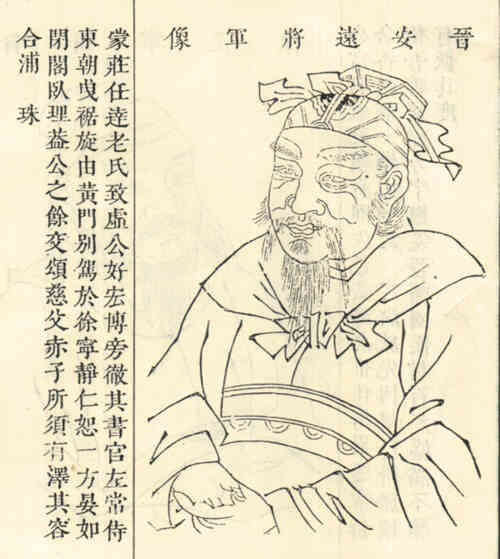 晉安遠將軍像
蒙莊任達老氏致虛公好宏博旁徹其書官左常侍
東朝曵裾旋由黃門別駕於徐寧靜仁恕一方晏如
閉閣臥理葢公之餘交頌慈父赤子所須有澤其容
合浦珠